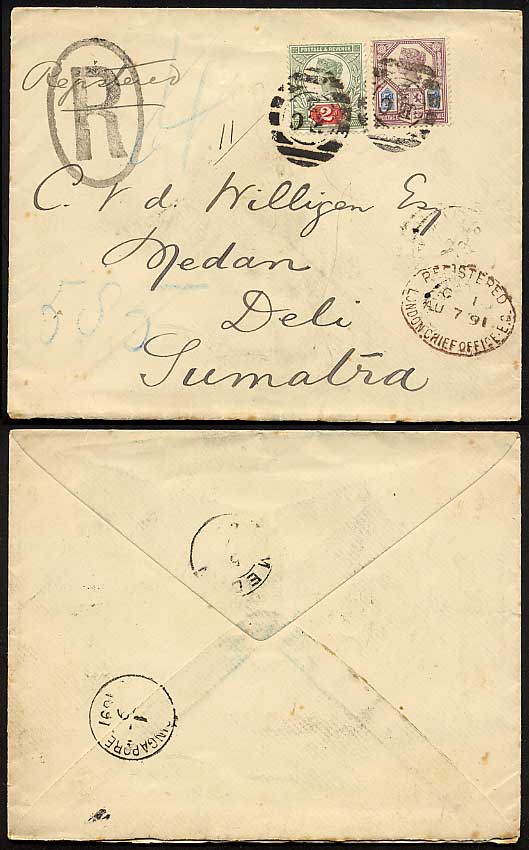 Registered
R
POSTAGE & REVENUE
2
11
C. V. d. Willigen Esq
Medan
Deli
Sumatra
585
REGISTERED
1
AU 7 91
LONDON CHIEF OFFICE. E.C.
MED
SINGAPORE
1891